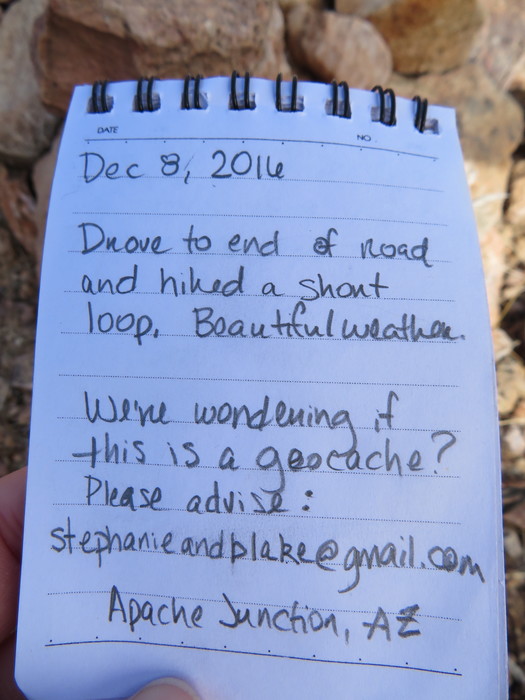 DATE NO
Dec 8, 2016
Drove to end of road
and hiked a short
loop. Beautiful weather.
We're wondering if
this is a geocache?
Please advise:
stephanieandblake@gmail.com
Apache Junction, AZ